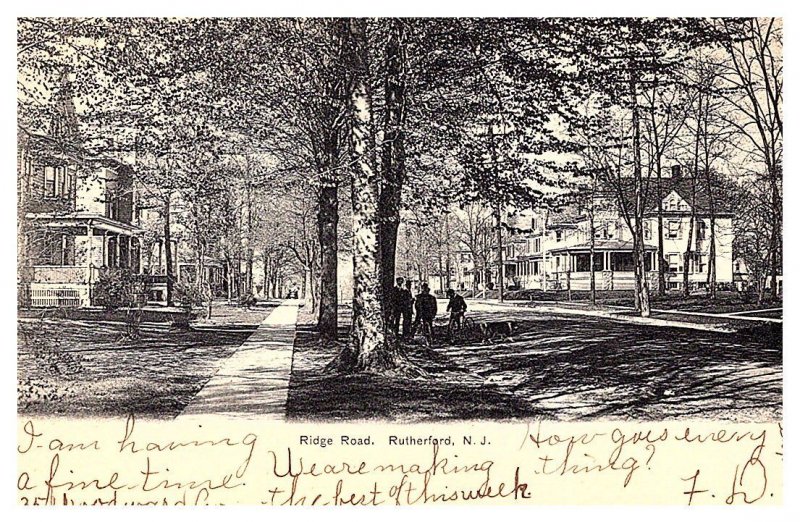 Ridge Road. Rutherford, N. J.
I am having
a fine time.
We are making
the best of this week
How goes every
thing?
7. D.